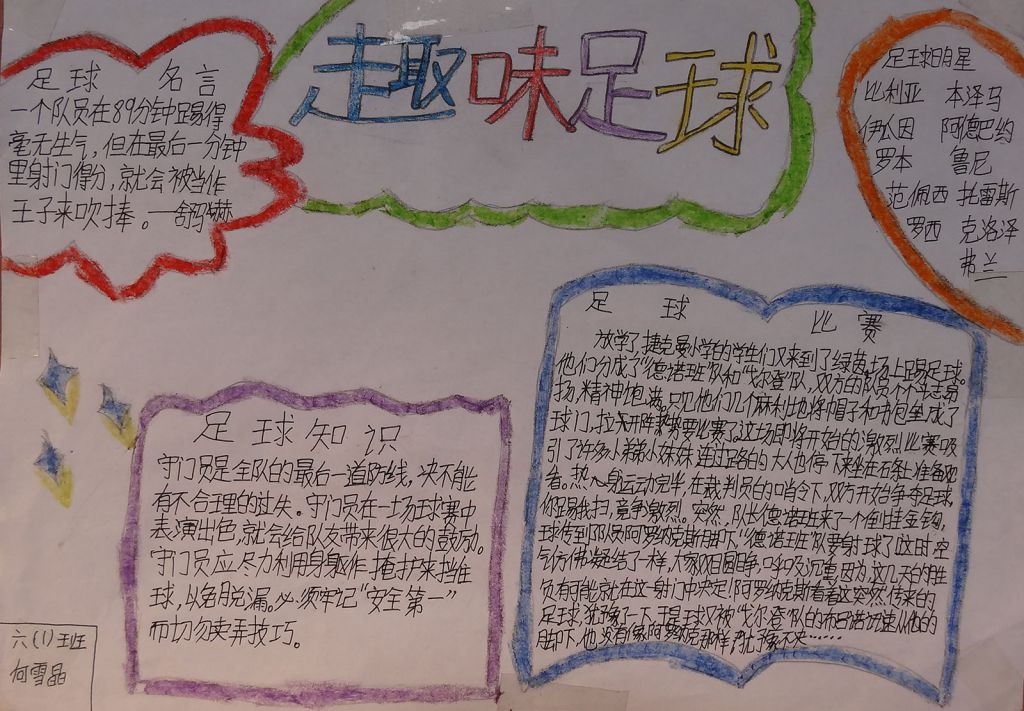 趣味足球
足球 名言
一个队员在89分钟踢得
毫无生气,但在最后一分钟
里射门得分,就会被当作
王子来吹捧。——舒玛赫
足球明星
比利亚 本泽马
伊瓜因 阿德巴约
罗本 鲁尼
范佩西 托雷斯
罗西 克洛泽
弗兰
足球知识
守门员是全队的最后一道防线,决不能
有不合理的过失。守门员在一场球赛中
表演出色,就会给队友带来很大的鼓励。
守门员应尽力利用身躯作掩护来挡住
球,以免脱漏。必须牢记“安全第一”
而切勿卖弄技巧。
足球比赛
放学了捷克曼小学的学生们又来到了绿茵场上踢足球。
他们分成了“德诺班”队和“戈尔登”队,双方的队员个个斗志昂
扬,精神饱满。只见他们几个麻利地将帽子和书包垒成了
球门,拉开阵势要比赛了。这场即将开始的激烈比赛吸
引了许多小弟弟小妹妹,连过路的大人也停下来坐在石阶上准备观
看。热心身运动完毕,在裁判员的哨令下,双方开始争夺足球,
你踢我扫,竟争激烈。突然,队长德诺班来了一个倒挂金钩,
球传到队员阿罗纳克斯脚下“德诺班”队要射球了这时空
气仿佛凝结了一样,大家双目圆睁,呼吸沉重,因为,这几天的胜
负有可能就在这一射门中决定!阿罗纳克斯看着这突然传来的
足球,犹豫了一下,于是球又被“戈尔登”队的布日诺迅速从他的
脚下,他没有像阿罗纳克那样犹豫不决……
六(1)班
何雪晶